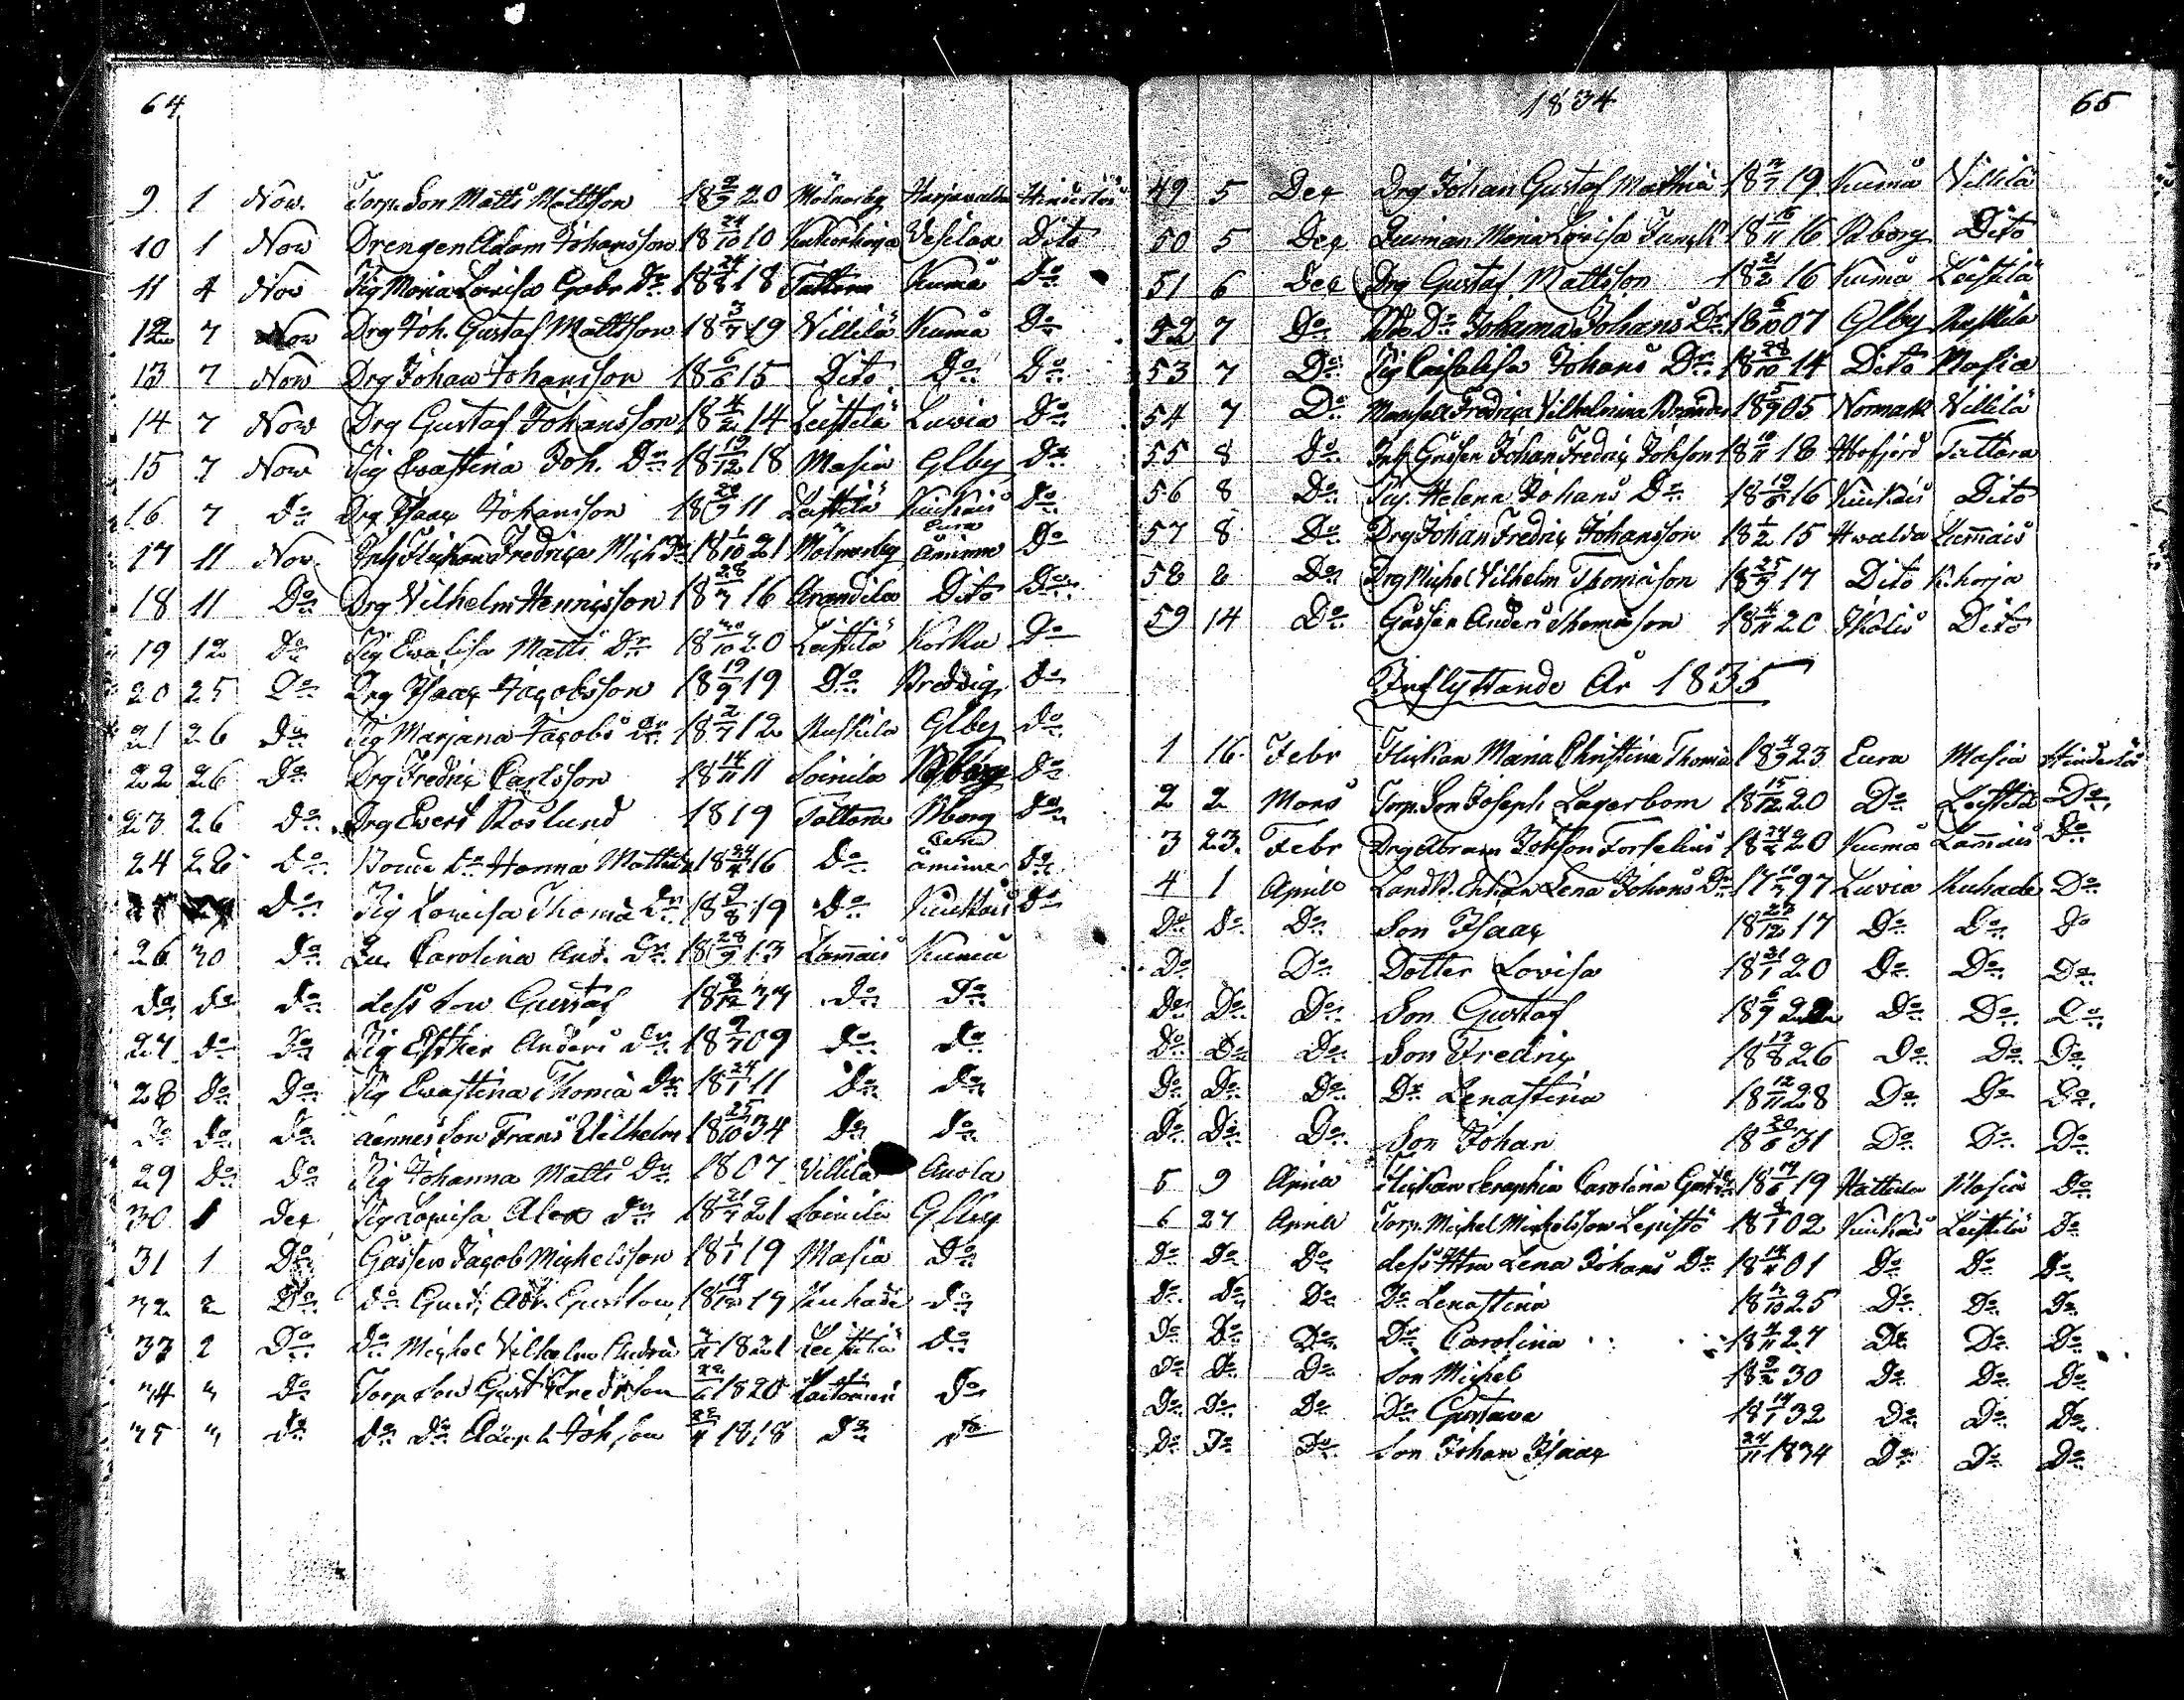 64
9 1 Nov. Torp. Son Matts Mattsson 18 20 Mölnarby Harjavalda Hinderlös
10 1 Nov Drengen Adam Johansson 18 24/10 10 Kukorkoja Vesilax Dito
11 4 Nov Pig Maria Lovisa Gabr. Dr 18 24/8 18 Tattara Kumå Do
12 7 Nov Drg Joh. Gustaf Mattsson 18 3/7 19 Villilä Kumå Do
13 7 Nov Drg Johan Johansson 18 6/6 15 Dito Do Do
14 7 Nov Drg Gustaf Johansson 18 4/2 14 Leistilä Luvia Do
15 7 Nov Pig Evastina Joh. Dr 18 19/12 18 Masia Glby Do
16 7 Do Drg Isaac Johansson 18 11 Leistilä Kiukais Do
17 11 Nov. Fredrica Mich Dr 18 1/10 21 Mölnarby Eura åminne Do
18 11 Do Drg Vilhelm Henricsson 18 28/7 16 Arandila Dito Do
19 12 Do Pig Evalisa Matts Dr 18 20 Leistilä Do
20 25 Do Drg Isaac Jacobsson 18 19/9 19 Do Do
21 26 Do Pig Marjana Jacobs Dr 18 2/7 12 Ruskila Glby Do
22 26 Do Drg Fredric Carlsson 18 14/11 11 Soinila Bborg Do
23 26 Do Drg Evert Roslund 1819 Tattara Bborg Do
24 28 Do Hanna 18 16 Do Eura åminne Do
Do Pig Lovisa Thoma Dr 18 9/8 19 Do Kiukais Do
26 30 Do Carolina And. Dr 18 28/9 13 Lammais Kumå
Do Do Do dess Son Gustaf 18 8/12 33 Do Do
27 Do Do Pig Esther Anders Dr 18 9/7 09 Do Do
28 Do Do Pig Evastina Thoma Dr 18 24/1 11 Do Do
Do Do Do dennes Son Frans Vilhelm 18 25/10 34 Do Do
29 Do Do Pig Johanna Matts Dr 1807 Villilä Anola
30 1 Dec Pig Lovisa Alex Dr 18 21/7 21 Soinila Glby
31 1 Do Gossen Jacob Michelsson 18 1/1 19 Masia Do
32 2 Do Do Gust. Adr. 18 19 Kuhade Do
33 2 Do Do Michel Vilhelm 1821 Leistilä Do
34 3 Do Torp Son Gust Fredrson 1820 Do
35 3 Do Do Do Joh son 1818 Do Do
1834
65
49 5 Dec Drg Johan Gustaf Mathia 18 3/7 19 Kumå Villilä
50 5 Dec Maria Lovisa 18 16/11 16 Bborg Dito
51 6 Dec Drg Gustaf Mattsson 18 21/2 16 Kumå Leistilä
52 7 Do Johanna Johans Dr 18 6/10 07 Glby Ruskila
53 7 Do Pig Caisalisa Johans Dr 18 28/10 14 Dito Masia
54 7 Do Mamsell Fredrica Vilhelmina 18 5/9 05 Villilä
55 8 Do Gossen Johan Fredric Johsson 18 18 Tattara
56 8 Do Pig. Helena Johans Dr 18 19/8 16 Kiukais Dito
57 8 Do Drg Johan Fredric Johansson 18 1/2 15 Hvalda Lammais
58 8 Do Drg Michel Vilhelm Thomasson 18 25/9 17 Dito K. korja
59 14 Do Gossen Anders Thomasson 18 4/11 20 Ikalis Dito
Inflyttande År 1835
1 16 Febr Flickan Maria Christina Thoma 18 4/9 23 Eura Masia Hinderlös
2 2 Mars Torp. Son Joseph Lagerbom 18 15/12 20 Do Leistilä Do
3 23. Febr Drg Abram Johsson Forselius 18 24/4 20 Kumå Lammais Do
4 1 Aprill Enkan Lena Johans Dr 17 97 Luvia Kuhade Do
Do Do Do Son Isaac 18 23/12 17 Do Do Do
Do Do Dotter Lovisa 18 31/1 20 Do Do Do
Do Do Do Son Gustaf 18 6/9 22 Do Do Do
Do Do Do Son Fredric 18 13/8 26 Do Do Do
Do Do Do Dr Lenastina 18 12/11 28 Do Do Do
Do Do Do Son Johan 18 20/6 31 Do Do Do
5 9 Aprill Flickan Seraphia Carolina 18 19 Masia Do
6 27 Aprill Torp. Michel Michelsson Lepistö 18 02 Kiukais Leistilä Do
Do Do Do dess Hra Lena Johans Dr 18 14/11 01 Do Do Do
Do Do Do Dr Lenastina 18 25 Do Do Do
Do Do Do Dr Carolina 18 4/11 27 Do Do Do
Do Do Do Son Michel 18 9/2 30 Do Do Do
Do Do Do Dr Gustava 18 14/1 32 Do Do Do
Do Do Do Son Johan Isaac 24/11 1834 Do Do Do